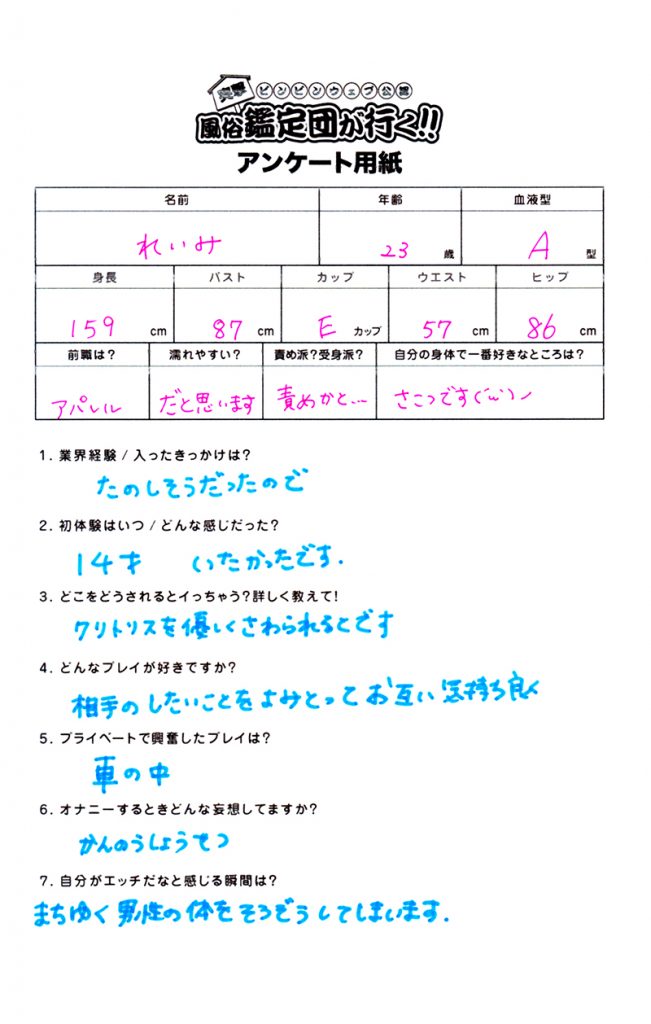 業界
ピンピンウェブ公認
風俗鑑定団が行く!!
アンケート用紙
名前 年齢 血液型
れいみ 23 歳 A 型
身長 バスト カップ ウエスト ヒップ
159 cm 87 cm E カップ 57 cm 86 cm
前職は? 濡れやすい? 責め派?受身派? 自分の身体で一番好きなところは?
アパレル だと思います 責めかと… さこつです
1. 業界経験 / 入ったきっかけは?
たのしそうだったので
3. どこをどうされるとイっちゃう?詳しく教えて!
クリトリスを優しくさわられるとです
4. どんなプレイが好きですか?
相手のしたいことをよみとってお互い気持ち良く
5. プライベートで興奮したプレイは?
車の中
6. オナニーするときどんな妄想してますか?
かんのうしょうせつ
7. 自分がエッチだなと感じる瞬間は?
まちゆく男性の体をそうぞうしてしまいます.